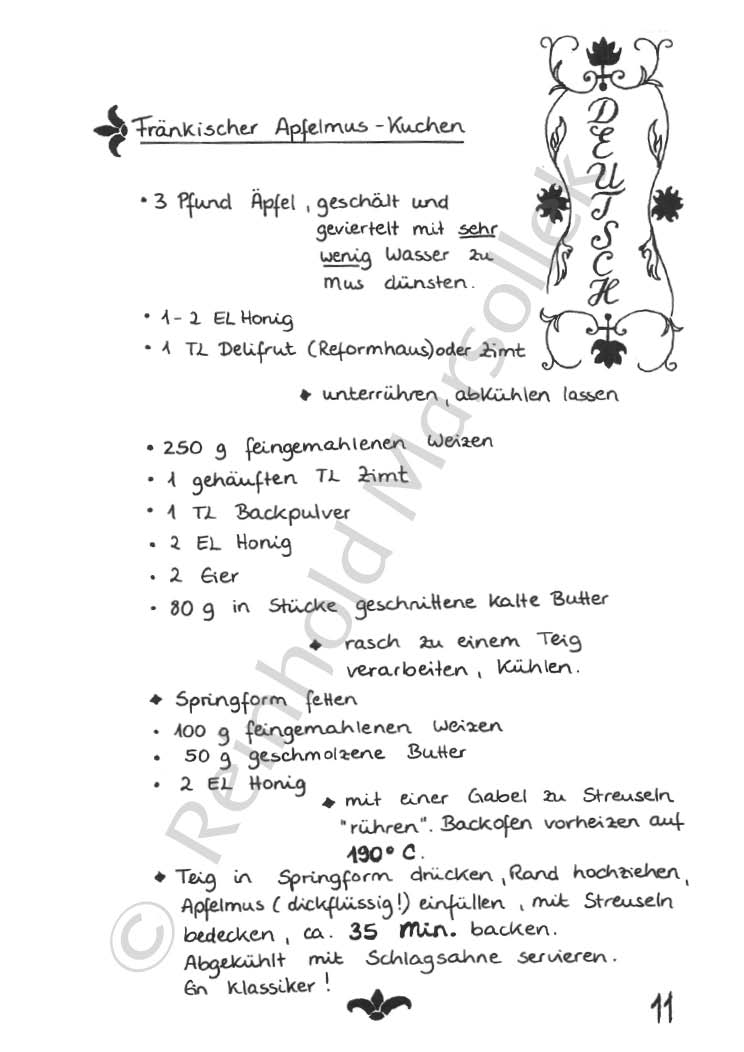 Fränkischer Apfelmus-Kuchen
DEUTSCH
• 3 Pfund Äpfel, geschält und
geviertelt mit sehr
wenig Wasser zu
Mus dünsten.
• 1-2 EL Honig
• 1 TL Delifrut (Reformhaus) oder Zimt
◆ unterrühren, abkühlen lassen
• 250 g feingemahlenen Weizen
• 1 gehäuften TL Zimt
• 1 TL Backpulver
• 2 EL Honig
• 2 Eier
• 80 g in Stücke geschnittene kalte Butter
◆ rasch zu einem Teig
verarbeiten, kühlen.
◆ Springform fetten
• 100 g feingemahlenen Weizen
• 50 g geschmolzene Butter
• 2 EL Honig
◆ mit einer Gabel zu Streuseln
"rühren". Backofen vorheizen auf
190° C.
◆ Teig in Springform drücken, Rand hochziehen,
Apfelmus (dickflüssig!) einfüllen, mit Streuseln
bedecken, ca. 35 Min. backen.
Abgekühlt mit Schlagsahne servieren.
En Klassiker!
11
© Reinhold Marsollek